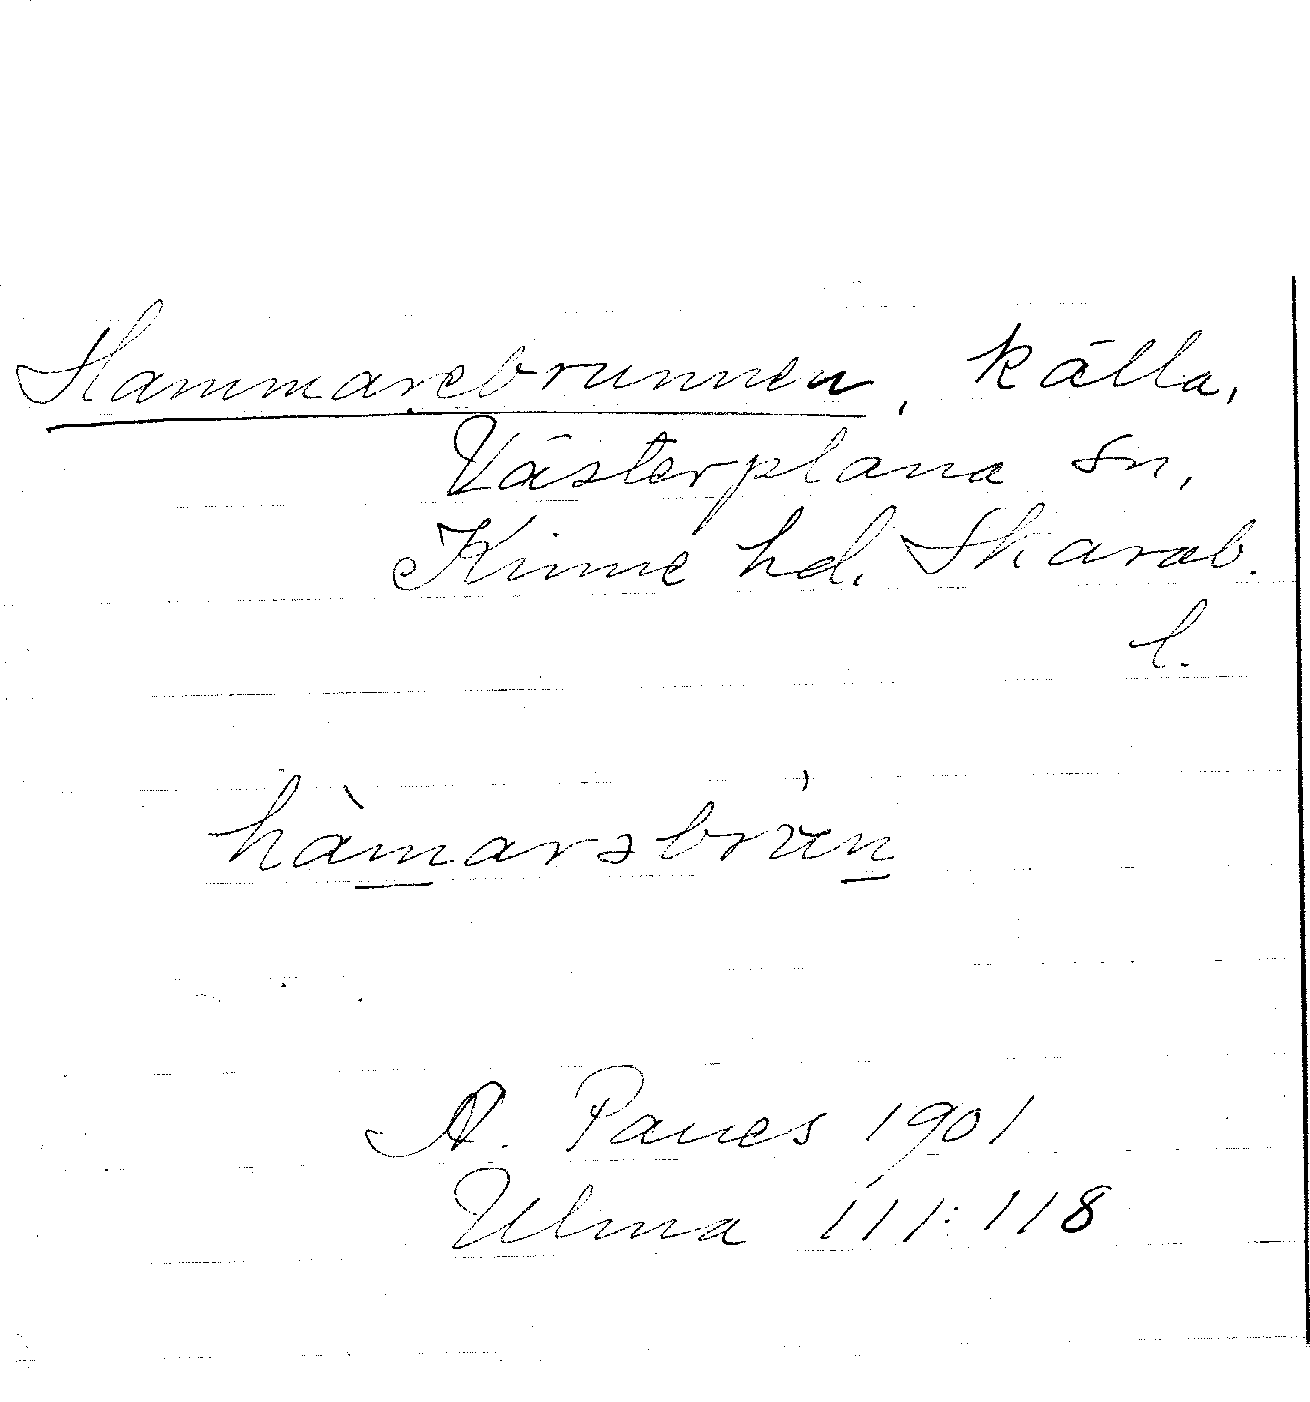 Hammarebrunnen, källa,
Västerplana sn,
Kinne hd. Skarab.
l.
hàmarəbrun
A. Paues 1901
Ulma 111:118